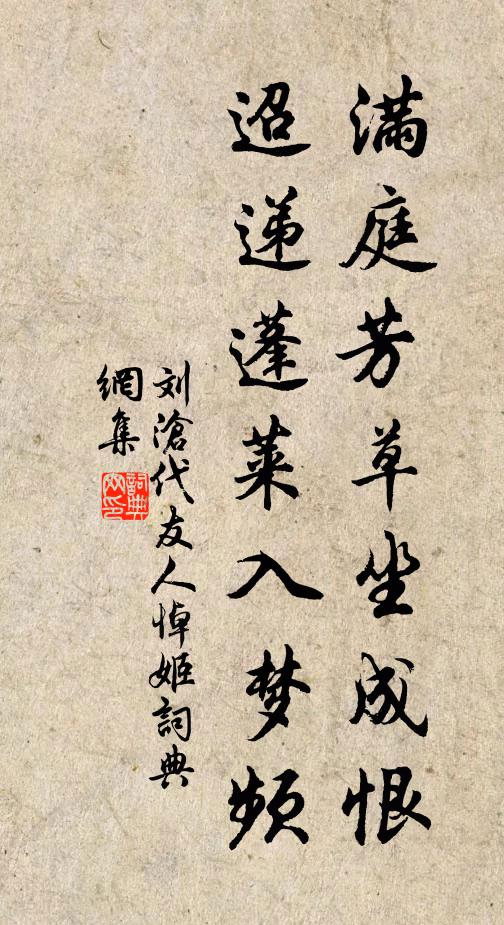 满庭芳草坐成恨
迢递蓬莱入梦频
刘沧代友人悼姬詞典
網集
詞典網印